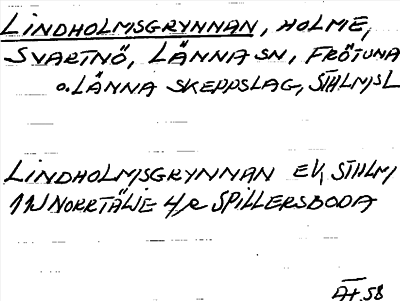 LINDHOLMSGRYNNAN, HOLME,
SVARTNÖ, LÄNNA SN, FRÖTUNA
O. LÄNNA SKEPPSLAG, STHLMSL
LINDHOLMSGRYNNAN EK, STHLM,
11J NORRTÄLJE 4/R SPILLERSBODA
58